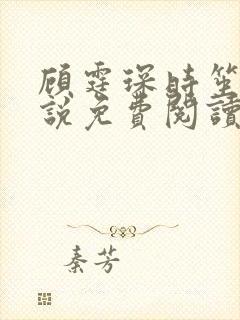 顾霆琛時笙
說免費閱讀
秦芳